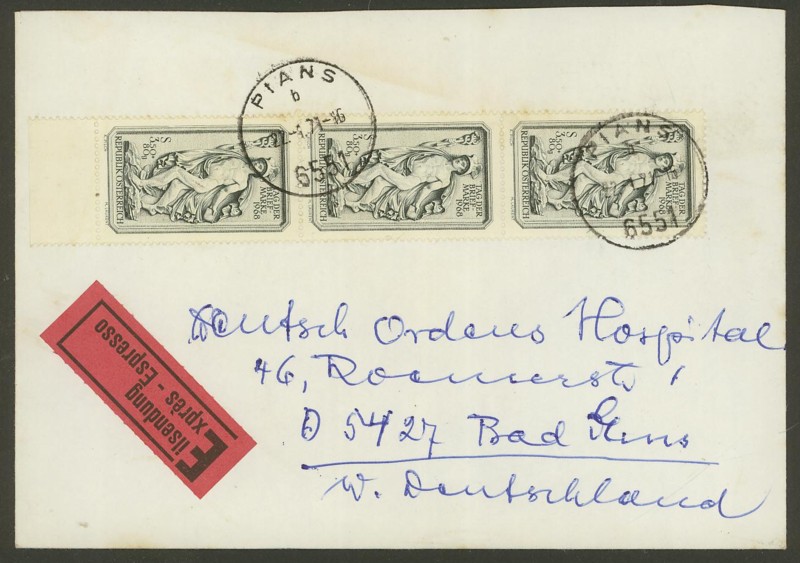 PIANS
b
22.-4.71-16
6551
PIANS
6551
S 3.50+
80g
REPUBLIK ÖSTERREICH
TAG DER
BRIEF-
MARKE
1968
S 3.50+
80g
REPUBLIK ÖSTERREICH
TAG DER
BRIEF-
MARKE
1968
S 3.50+
80g
REPUBLIK ÖSTERREICH
TAG DER
BRIEF-
MARKE
1968
Eilsendung
Exprès - Espresso
Deutsch Ordens Hospital
46, Roemerstr
D 5427 Bad Ems
W. Deutschland